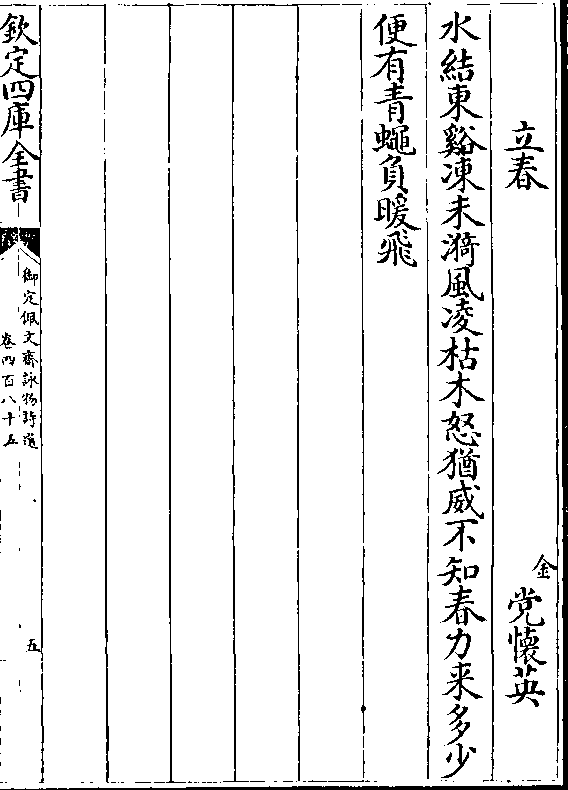 立春
金
党懐英
水結東谿凍未漪風凌枯木怒猶威不知春力来多少
便有青蠅負暖飛
欽定四庫全書
御定佩文齋詠物詩選
卷四百八十五
五